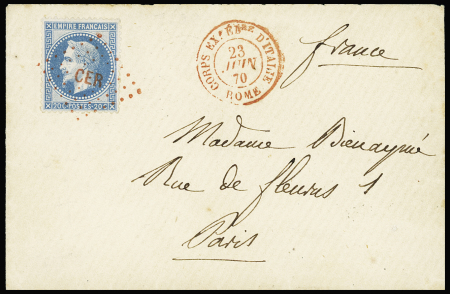 EMPIRE FRANÇAIS
CER
20c POSTES 20c
CORPS EXPRE D'ITALIE
23
JUIN
70
ROME
france
Madame Bienaymé
Rue de fleurus 1
Paris